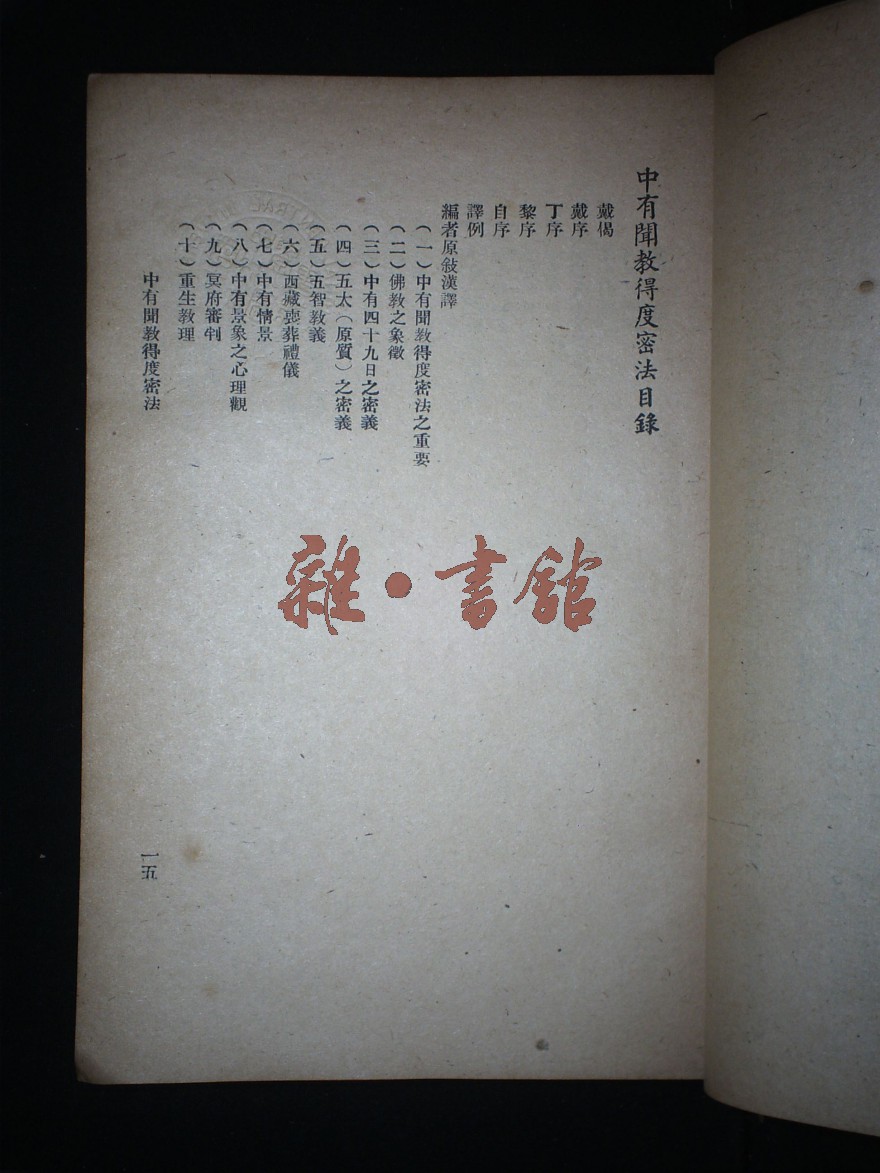 中有聞教得度密法目錄
戴偈
戴序
丁序
黎序
自序
譯例
編者原敍漢譯
(一)中有聞教得度密法之重要
(二)佛教之象徵
(三)中有四十九日之密義
(四)五太(原質)之密義
(五)五智教義
(六)西藏喪葬禮儀
(七)中有情景
(八)中有景象之心理觀
(九)冥府審判
(十)重生教理
中有聞教得度密法
一五
雜·書館